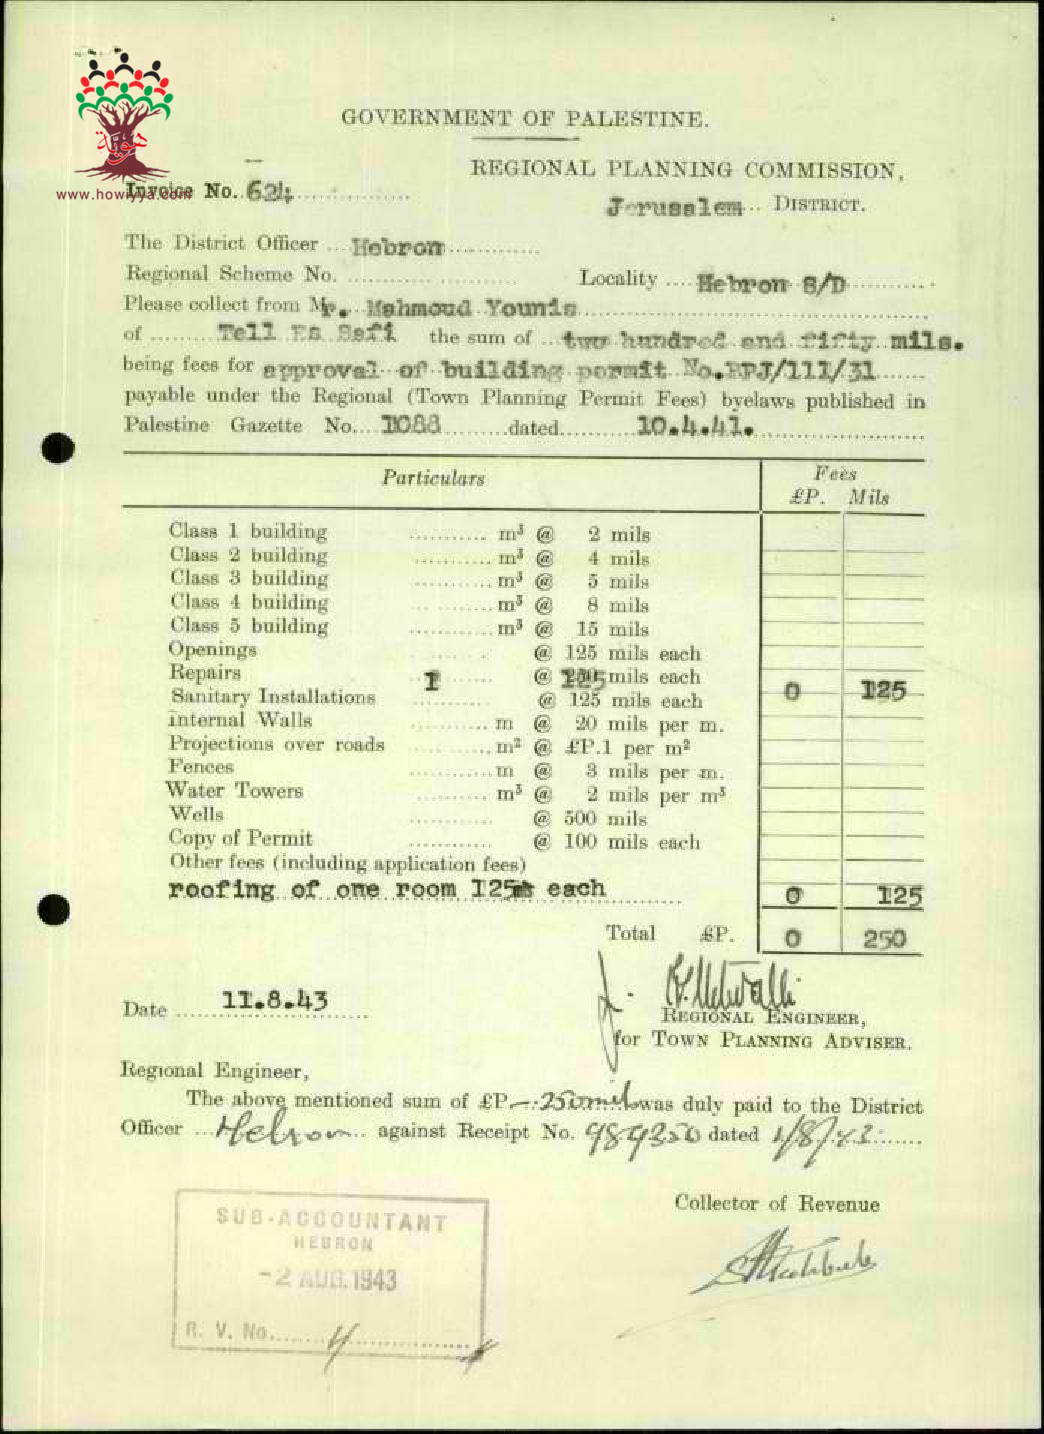 هوية
www.howiyya.com
GOVERNMENT OF PALESTINE.
REGIONAL PLANNING COMMISSION,
Invoice No. 624
Jerusalem DISTRICT.
The District Officer Hebron
Regional Scheme No. Locality Hebron S/D
Please collect from Mr. Mahmoud Younis
of Tell Es Safi the sum of two hundred and fifty mils.
being fees for approval of building permit No. RPJ/111/31
payable under the Regional (Town Planning Permit Fees) byelaws published in
Palestine Gazette No. 1088 dated 10.4.41.
Particulars Fees
£P. Mils
Class 1 building m³ @ 2 mils
Class 2 building m³ @ 4 mils
Class 3 building m³ @ 5 mils
Class 4 building m³ @ 8 mils
Class 5 building m³ @ 15 mils
Openings @ 125 mils each
Repairs 1 @ 125 mils each 0 125
Sanitary Installations @ 125 mils each
Internal Walls m @ 20 mils per m.
Projections over roads m² @ £P.1 per m²
Fences m @ 3 mils per m.
Water Towers m³ @ 2 mils per m³
Wells @ 500 mils
Copy of Permit @ 100 mils each
Other fees (including application fees)
roofing of one room 125 each 0 125
Total £P. 0 250
Date 11.8.43
REGIONAL ENGINEER,
for TOWN PLANNING ADVISER.
Regional Engineer,
The above mentioned sum of £P.—250 mils was duly paid to the District
Officer Hebron against Receipt No. 989350 dated /8/43
Collector of Revenue
SUB-ACCOUNTANT
HEBRON
-2 AUG. 1943
R. V. No. 4